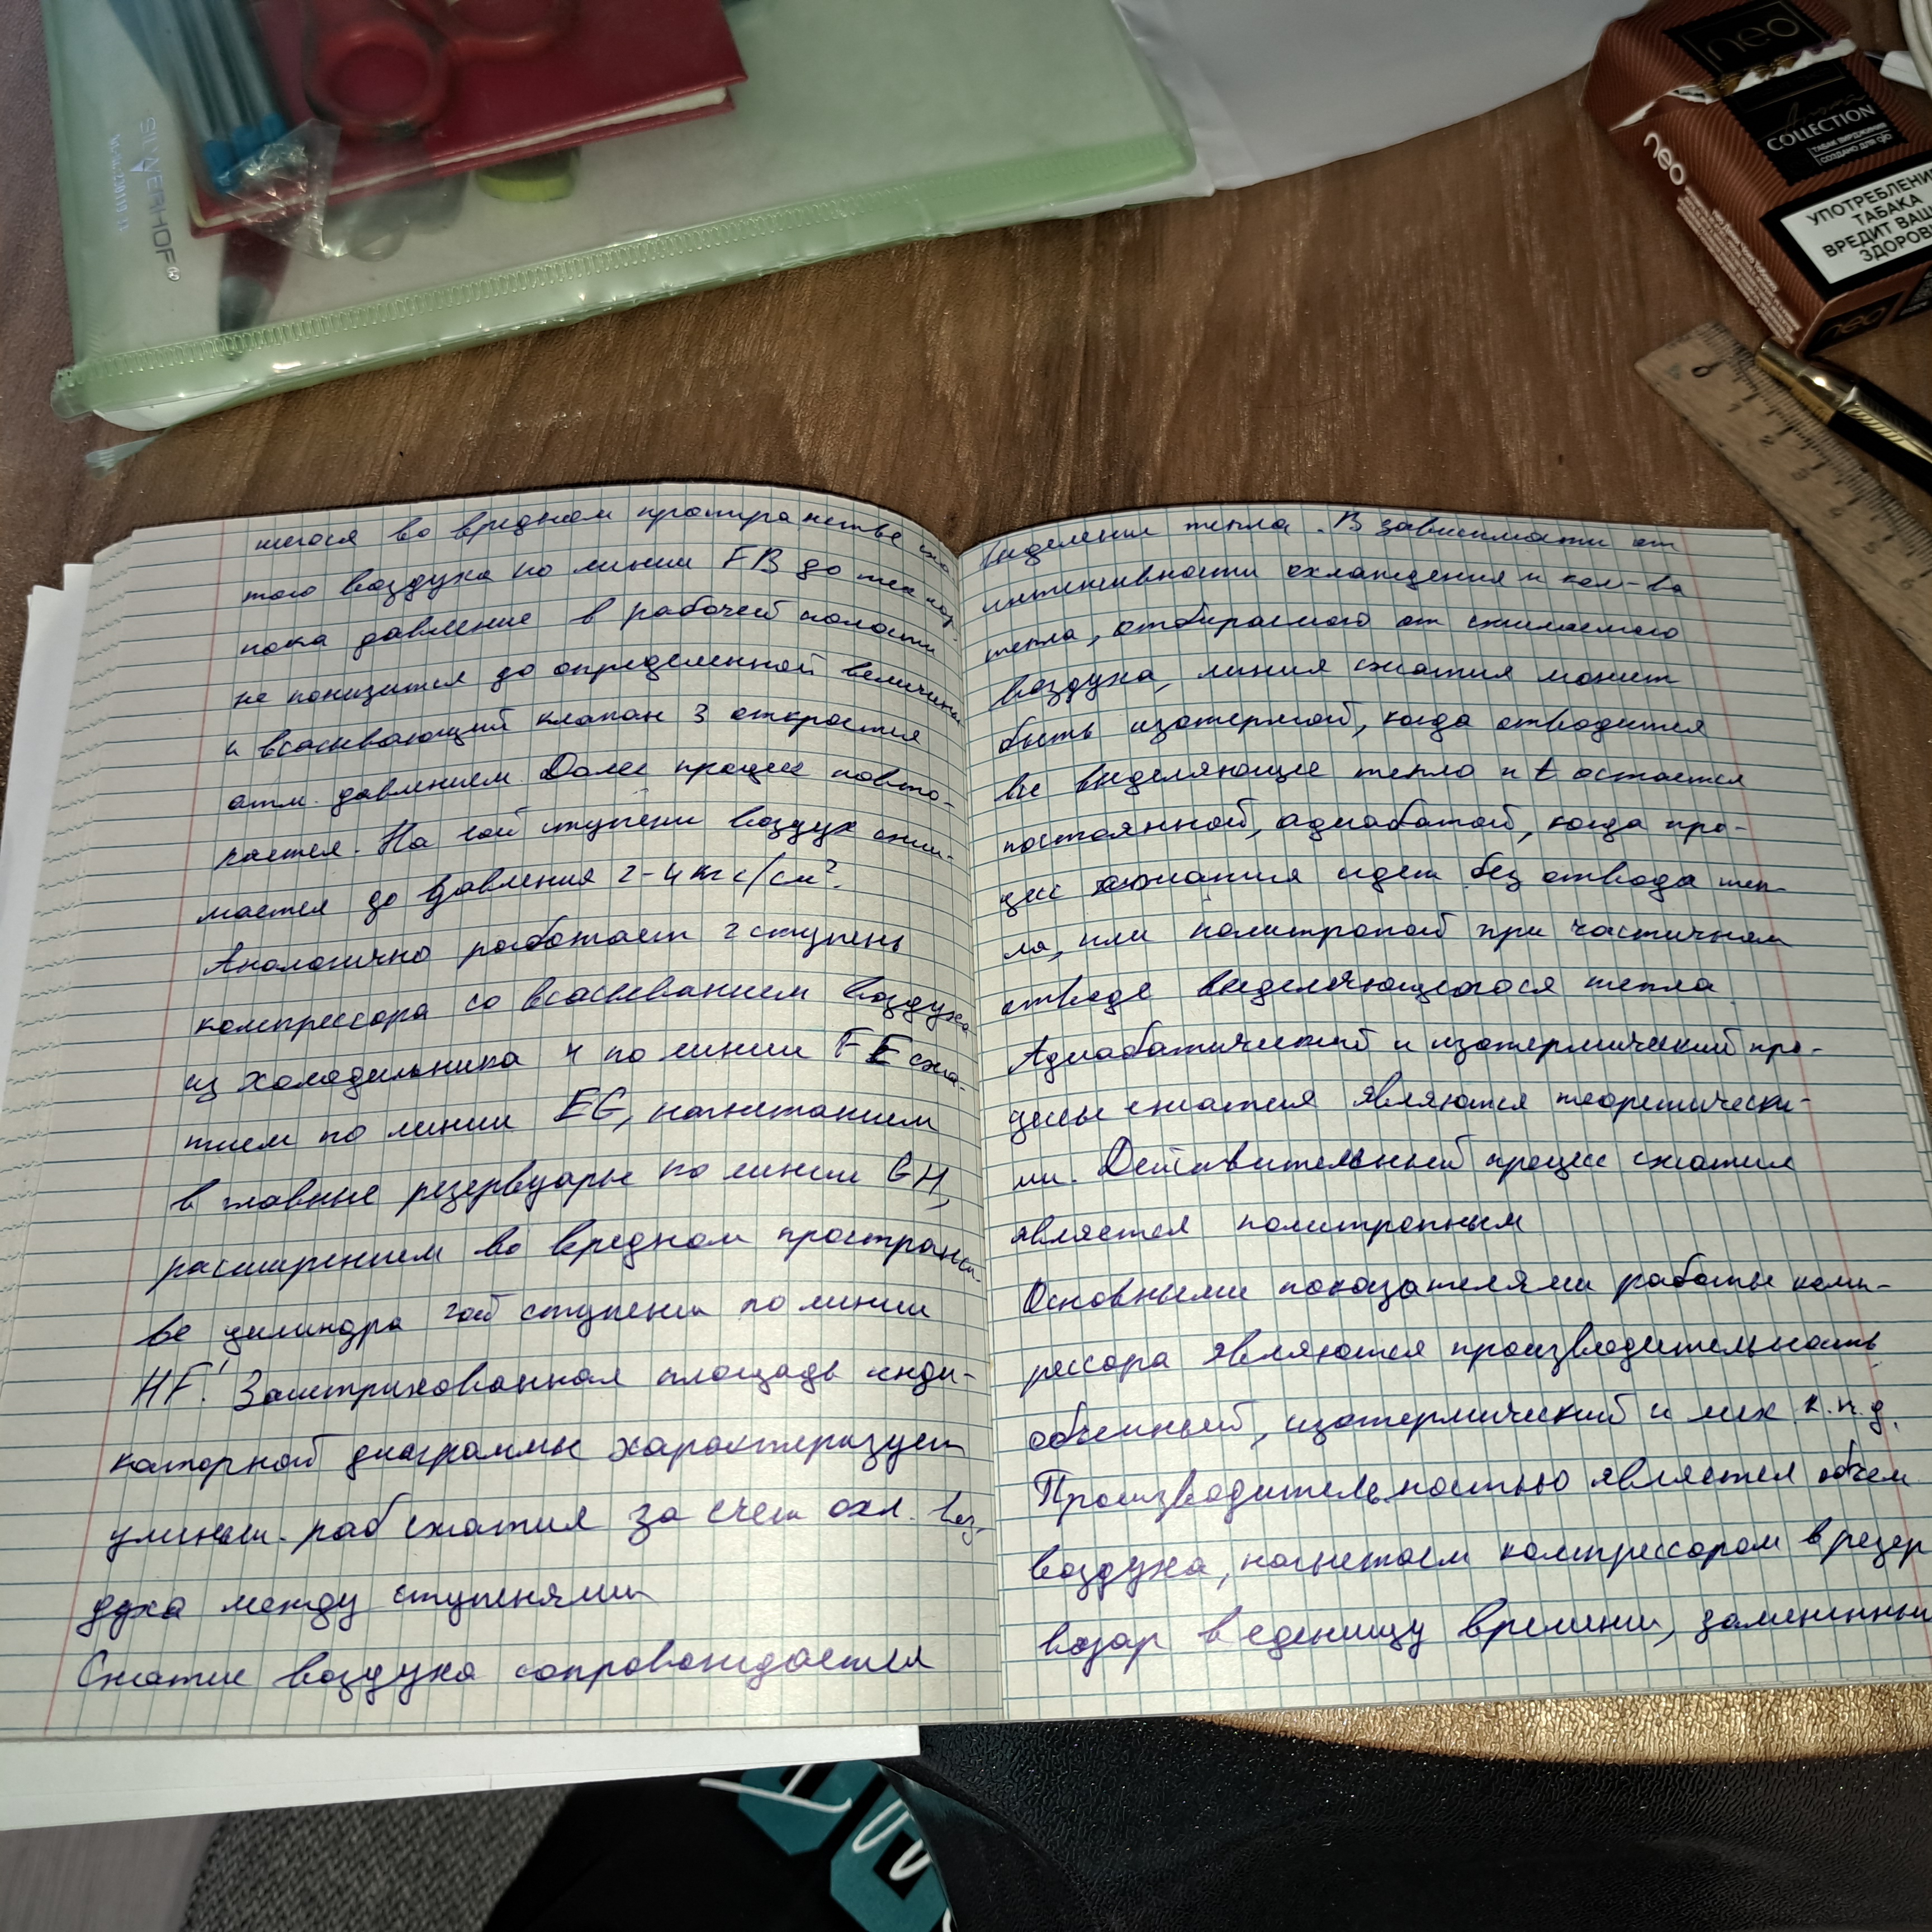 SILWERHOF®
neo
COLLECTION
ТАБАК ВИРДЖИНИЯ
СОЗДАНО ДЛЯ glo
neo
УПОТРЕБЛЕНИ
ТАБАКА
ВРЕДИТ ВАШ
ЗДОРОВЬ
neo
0 1 2 3 4 5 6
шегося во вредном пространстве сжа
того воздуха по линии FB до тех пор,
пока давление в рабочей полости
не понизится до определенной величины
и всасывающий клапан 3 откроется
атм. давлением. Далее процесс повто-
ряется. На 1ой ступени воздух сжи-
мается до давления 2-4 кгс/см².
Аналогично работает 2 ступень
компрессора со всасыванием воздуха
из холодильника 4 по линии FE сжа-
тием по линии EG, нагнетанием
в главные резервуары по линии GH,
расширением во вредном пространст-
ве цилиндра 2ой ступени по линии
HF'. Заштрихованная площадь инди-
каторной диаграммы характеризует
уменьш. раб сжатия за счет охл. воз-
духа между ступенями
Сжатие воздуха сопровождается
выделением тепла. В зависимости от
интенсивности охлаждения и кол-ва
тепла, отбираемого от сжимаемого
воздуха, линия сжатия может
быть изотермой, когда отводится
все выделяющее тепло и t остается
постоянной, адиабатой, когда про-
цесс сжатия идет без отвода теп-
ла, или политропой при частичном
отводе выделяющегося тепла.
Адиабатический и изотермический про-
цессы сжатия являются теоретически-
ми. Действительный процесс сжатия
является политропным
Основными показателями работы комп-
рессора являются производительность,
объемный, изотермический и мех к.п.д.
Производительностью является объем
воздуха, нагнетаем компрессором в резер
возар в еденицу времени, замененный